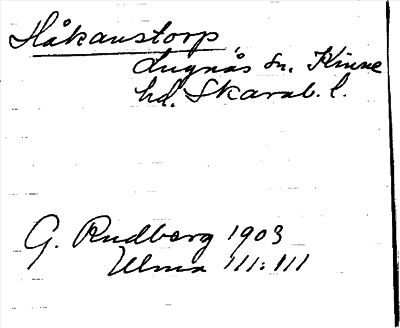 Håkanstorp,
Lugnås sn. Kinne
hd. Skarab. l.
G. Rudberg 1903
Ulma 111:111